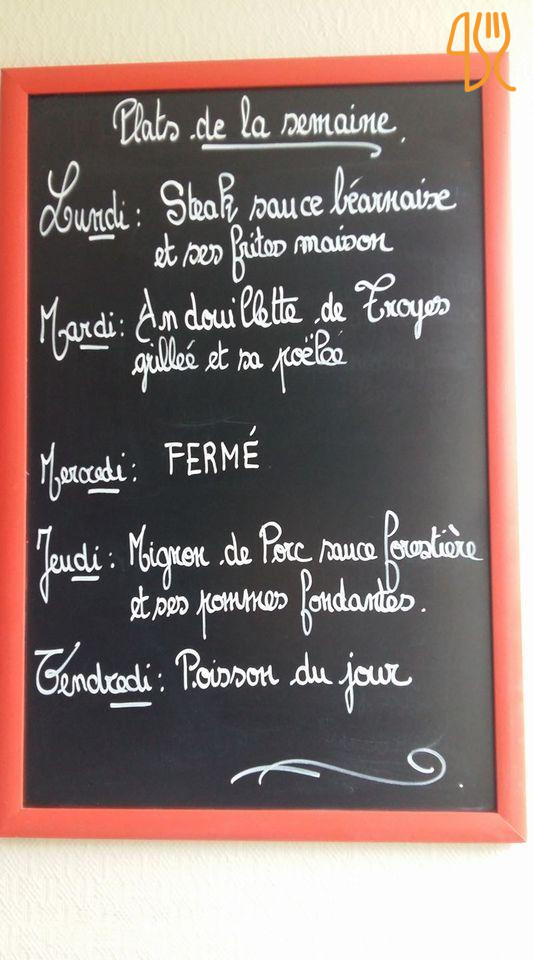 Plats de la semaine.
Lundi : Steak sauce béarnaise
et ses frites maison
Mardi : Andouillette de Troyes
grilleé et sa poëleé
Mercredi : FERMÉ
Jeudi : Mignon de Porc sauce forestière
et ses pommes fondantes.
Vendredi : Poisson du jour